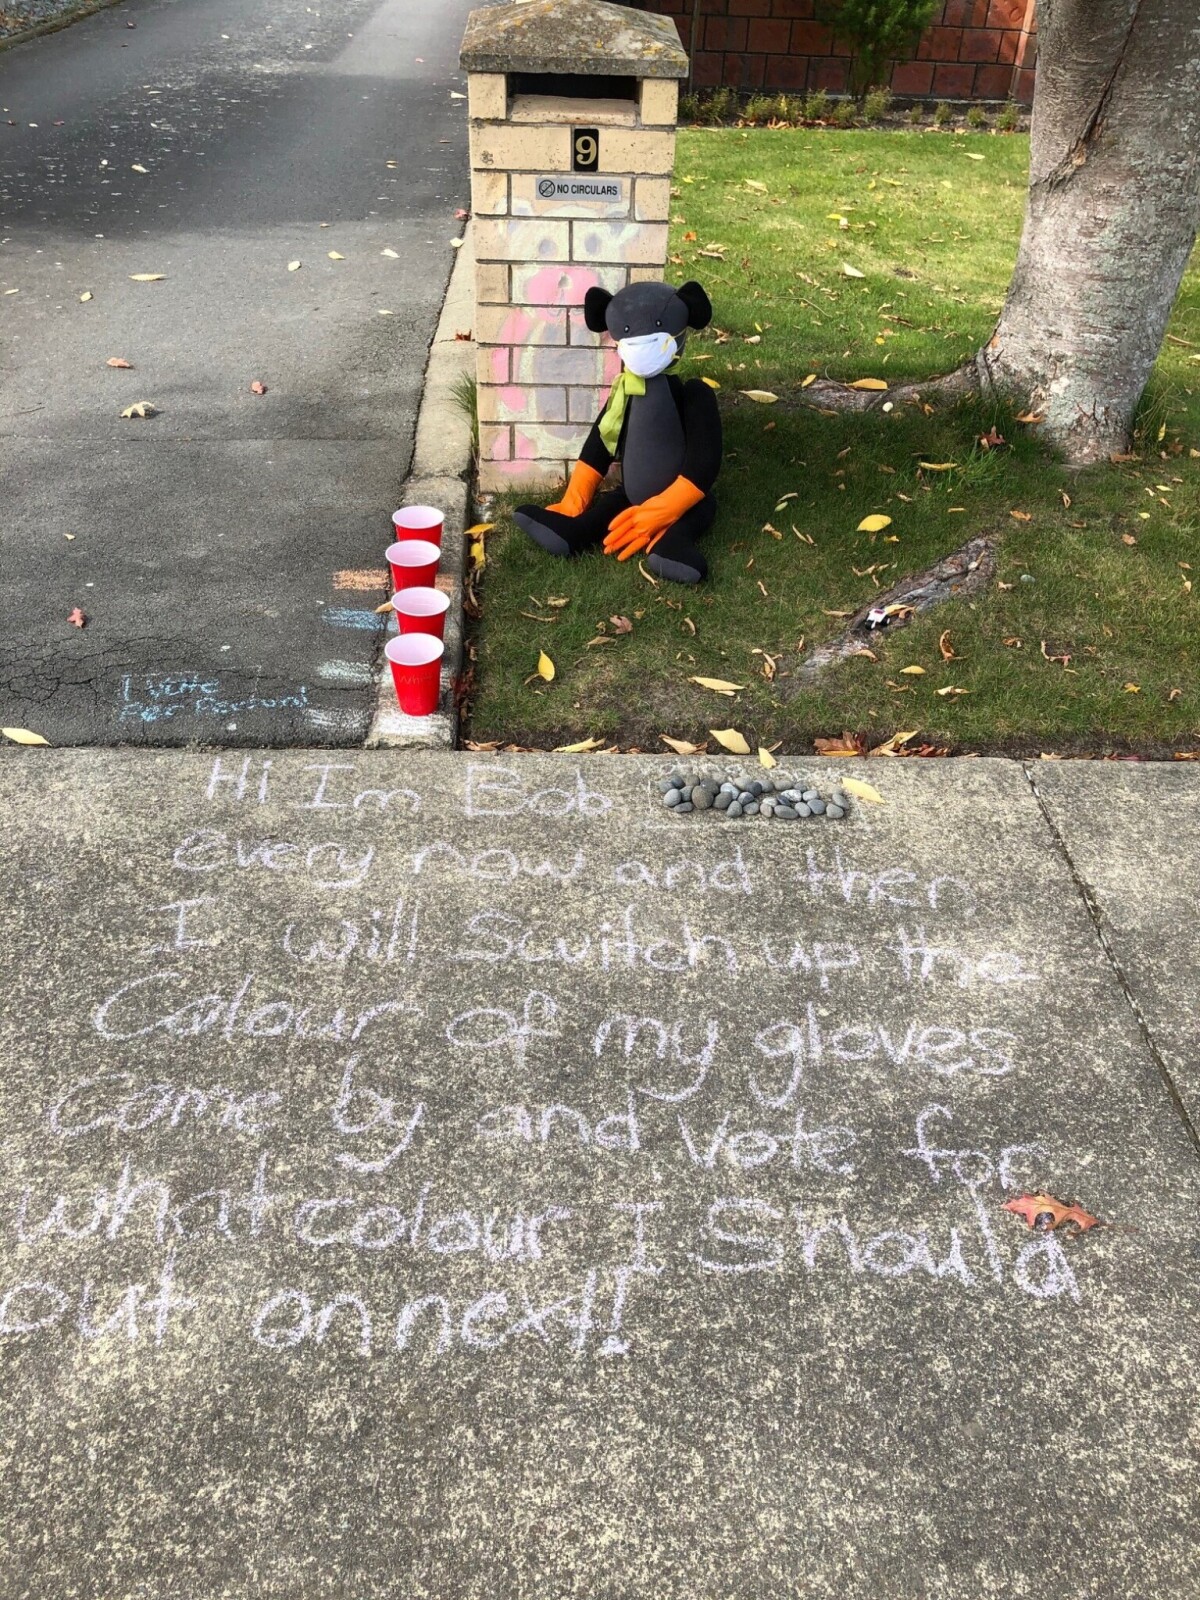 9
NO CIRCULARS
1 Vote
Per Person!
Hi Im Bob
every now and then
I will Switch up the
Colour of my gloves
come by and vote for
what colour I Should
put on next!!